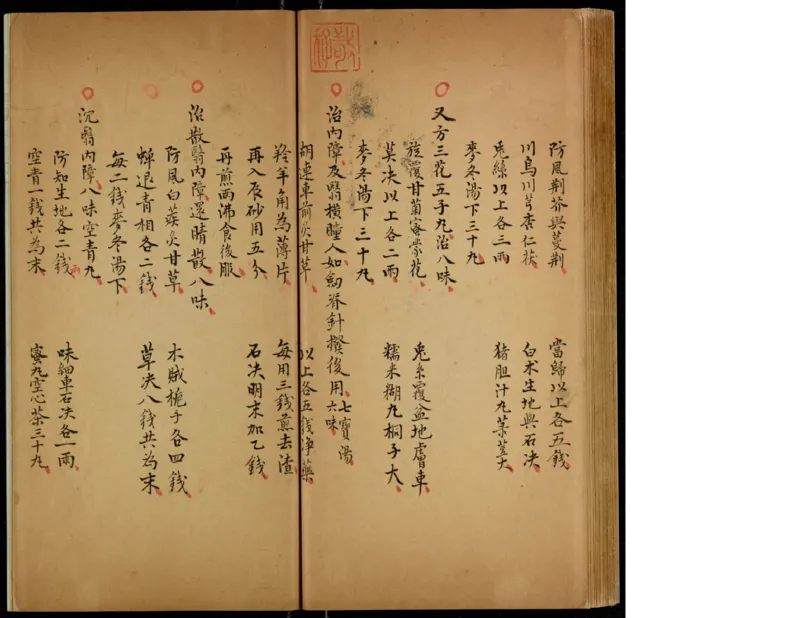 防風荆芥與蔓荆 當歸以上各五錢
川烏川芎杏仁茯 白术生地與石决
兎絲以上各三兩 猪胆汁丸菉荳大
麥冬湯下三十丸
又方三花五子丸治八味
旋覆甘菊密蒙花 兎糸覆盆地膚車
英决以上各二兩 糯米糊丸桐子大
麥冬湯下三十丸
治內障及翳橫瞳人如劔脊針撥後用七寶湯六味
胡連車前炙甘草 以上各五錢净藥
羚羊角為薄片 每用三錢煎去渣
再入辰砂用五分 石决明末加乙錢
再煎兩沸食後服
治散翳內障還睛散八味
防風白蒺炙甘草 木賊梔子各四錢
蟬退青相各二錢 草决八錢共為末
每二錢麥冬湯下
沉翳內障八味空青丸
防知生地各二錢 味細車石决各一兩
空青一錢共為末 蜜丸空心茶三十丸